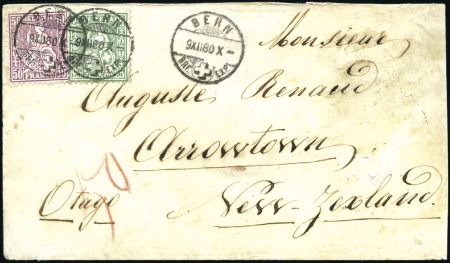 BERN
9XII80X
BRF. EXPL
BERN
9XII80X-
BRF. EXPL
50 FRANCO
Monsieur
Auguste Renaud
Arrowtown
Otago New-Zealand.